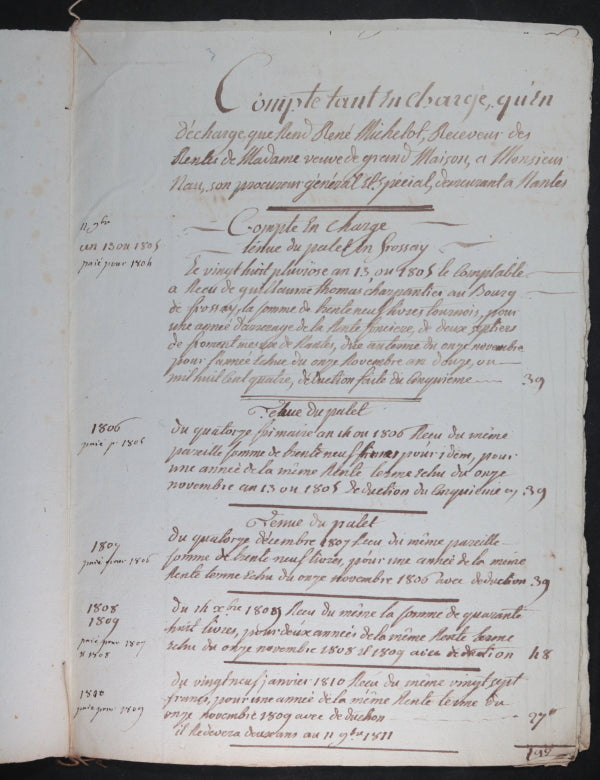 Compte tant En charge, qu'En
décharge, que Rend René Michelot, Receveur des
Rentes de Madame veuve de grand Maison, a Monsieur
Nau, son procureur général Et Spécial, demeurant a Nantes
Compte En Charge
tenue du palet En frossay
11 9bre
an 13 ou 1805
paié pour 1804
Le vingt huit pluviose an 13 ou 1805 le Comptable
a Recu de guillaume thomas charpentier au Bourg
de frossay, la somme de trente neuf livres tournois, pour
une année d'arrerage de la Rente fonciere, de deux septiers
de froment mesure de Nantes, due au terme du onze novembre
pour l'année Echue du onze Novembre an douze, ou
mil huit Cent quatre, déduction faite du Cinquieme 39
Tenue du palet
1806
paié p. 1805
du quatorze frimaire an 14 ou 1806 Recu du même
pareille somme de trente neuf livres pour idem, pour
une année de la même Rente terme Echu du onze
novembre an 13 ou 1805 deduction du Cinquieme 39
Tenue du palet
1807
paié pour 1806
du quatorze décembre 1807 Recu du même pareille
somme de trente neuf livres, pour une année de la même
Rente terme Echu du onze novembre 1806 avec deduction 39
1808
1809
paié pour 1807
et 1808
du 14 xbre 1809 Recu du même la somme de quarante
huit livres, pour deux années de la même Rente terme
Echu du onze novembre 1808 et 1809 avec deduction 48
1810
paié pour 1809
du vingt neuf janvier 1810 Recu du même vingt sept
francs, pour une année de la même Rente terme du
onze novembre 1809 avec deduction 27"
il Redevera deux ans au 11 9bre 1811